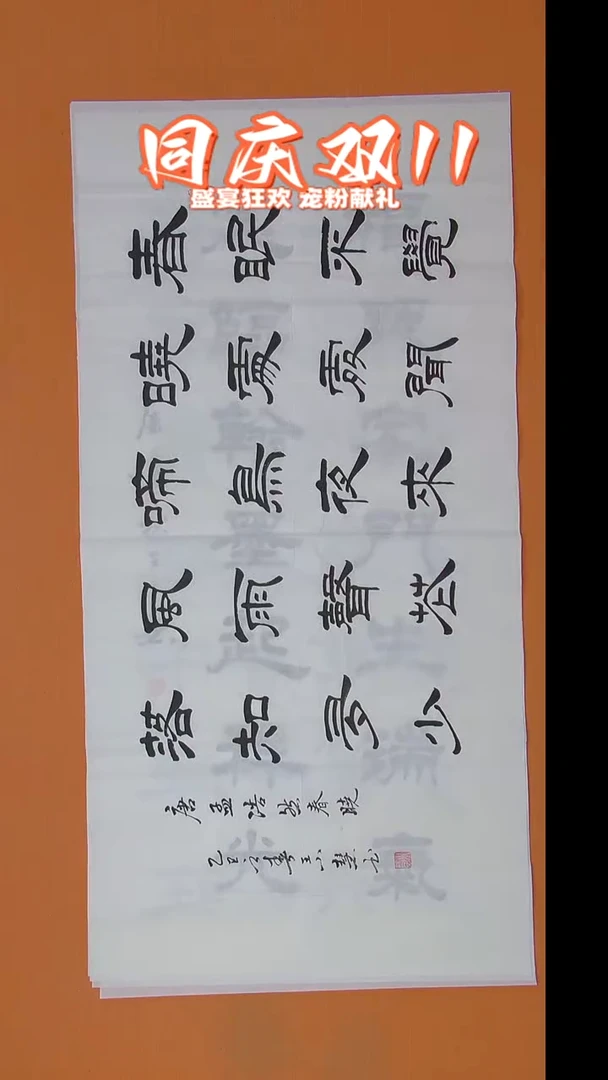 同庆双11
盛宴狂欢 宠粉献礼
春眠不覺
曉處處聞
啼鳥夜來
風雨聲花
落知多少
唐孟浩然春晓
乙巳